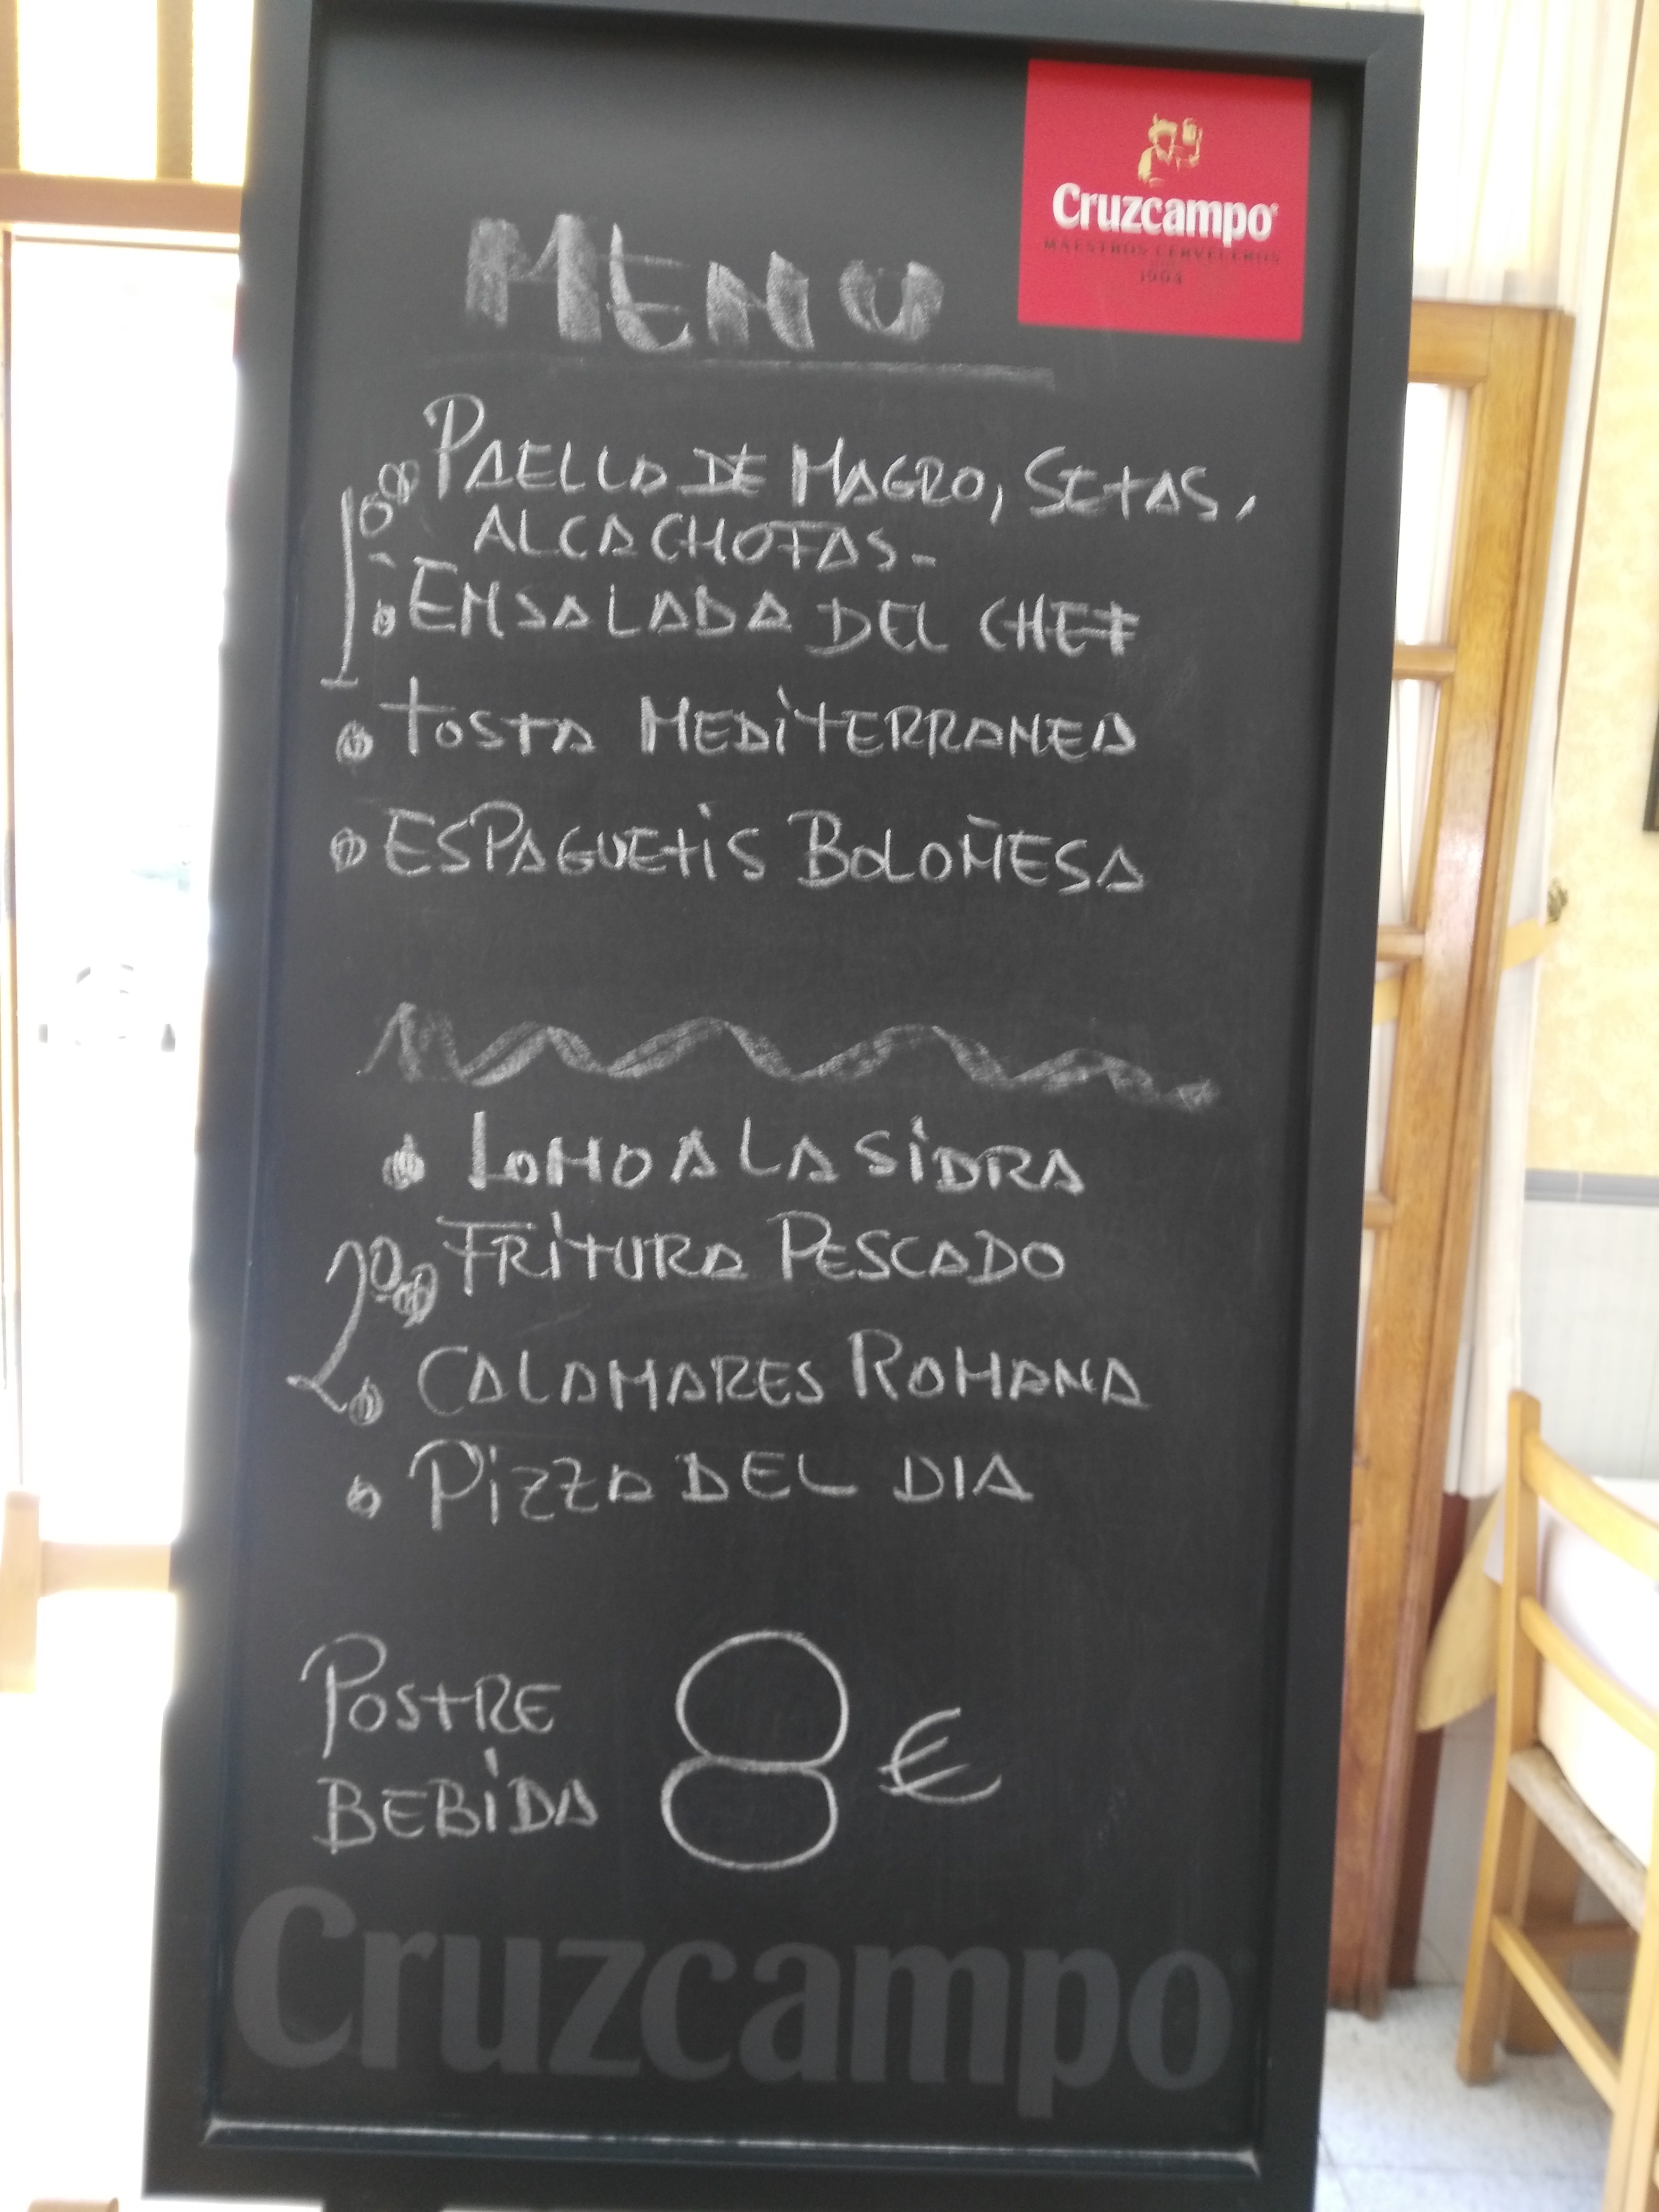 Cruzcampo
MAESTROS CERVECEROS
1904
MENU
1º PAELLA DE MAGRO, SETAS,
ALCACHOFAS-
ENSALADA DEL CHEF
TOSTA MEDITERRANEA
ESPAGUETIS BOLOÑESA
LOMO A LA SIDRA
2º FRITURA PESCADO
CALAMARES ROMANA
PIZZA DEL DIA
POSTRE
BEBIDA
8 €
Cruzcampo